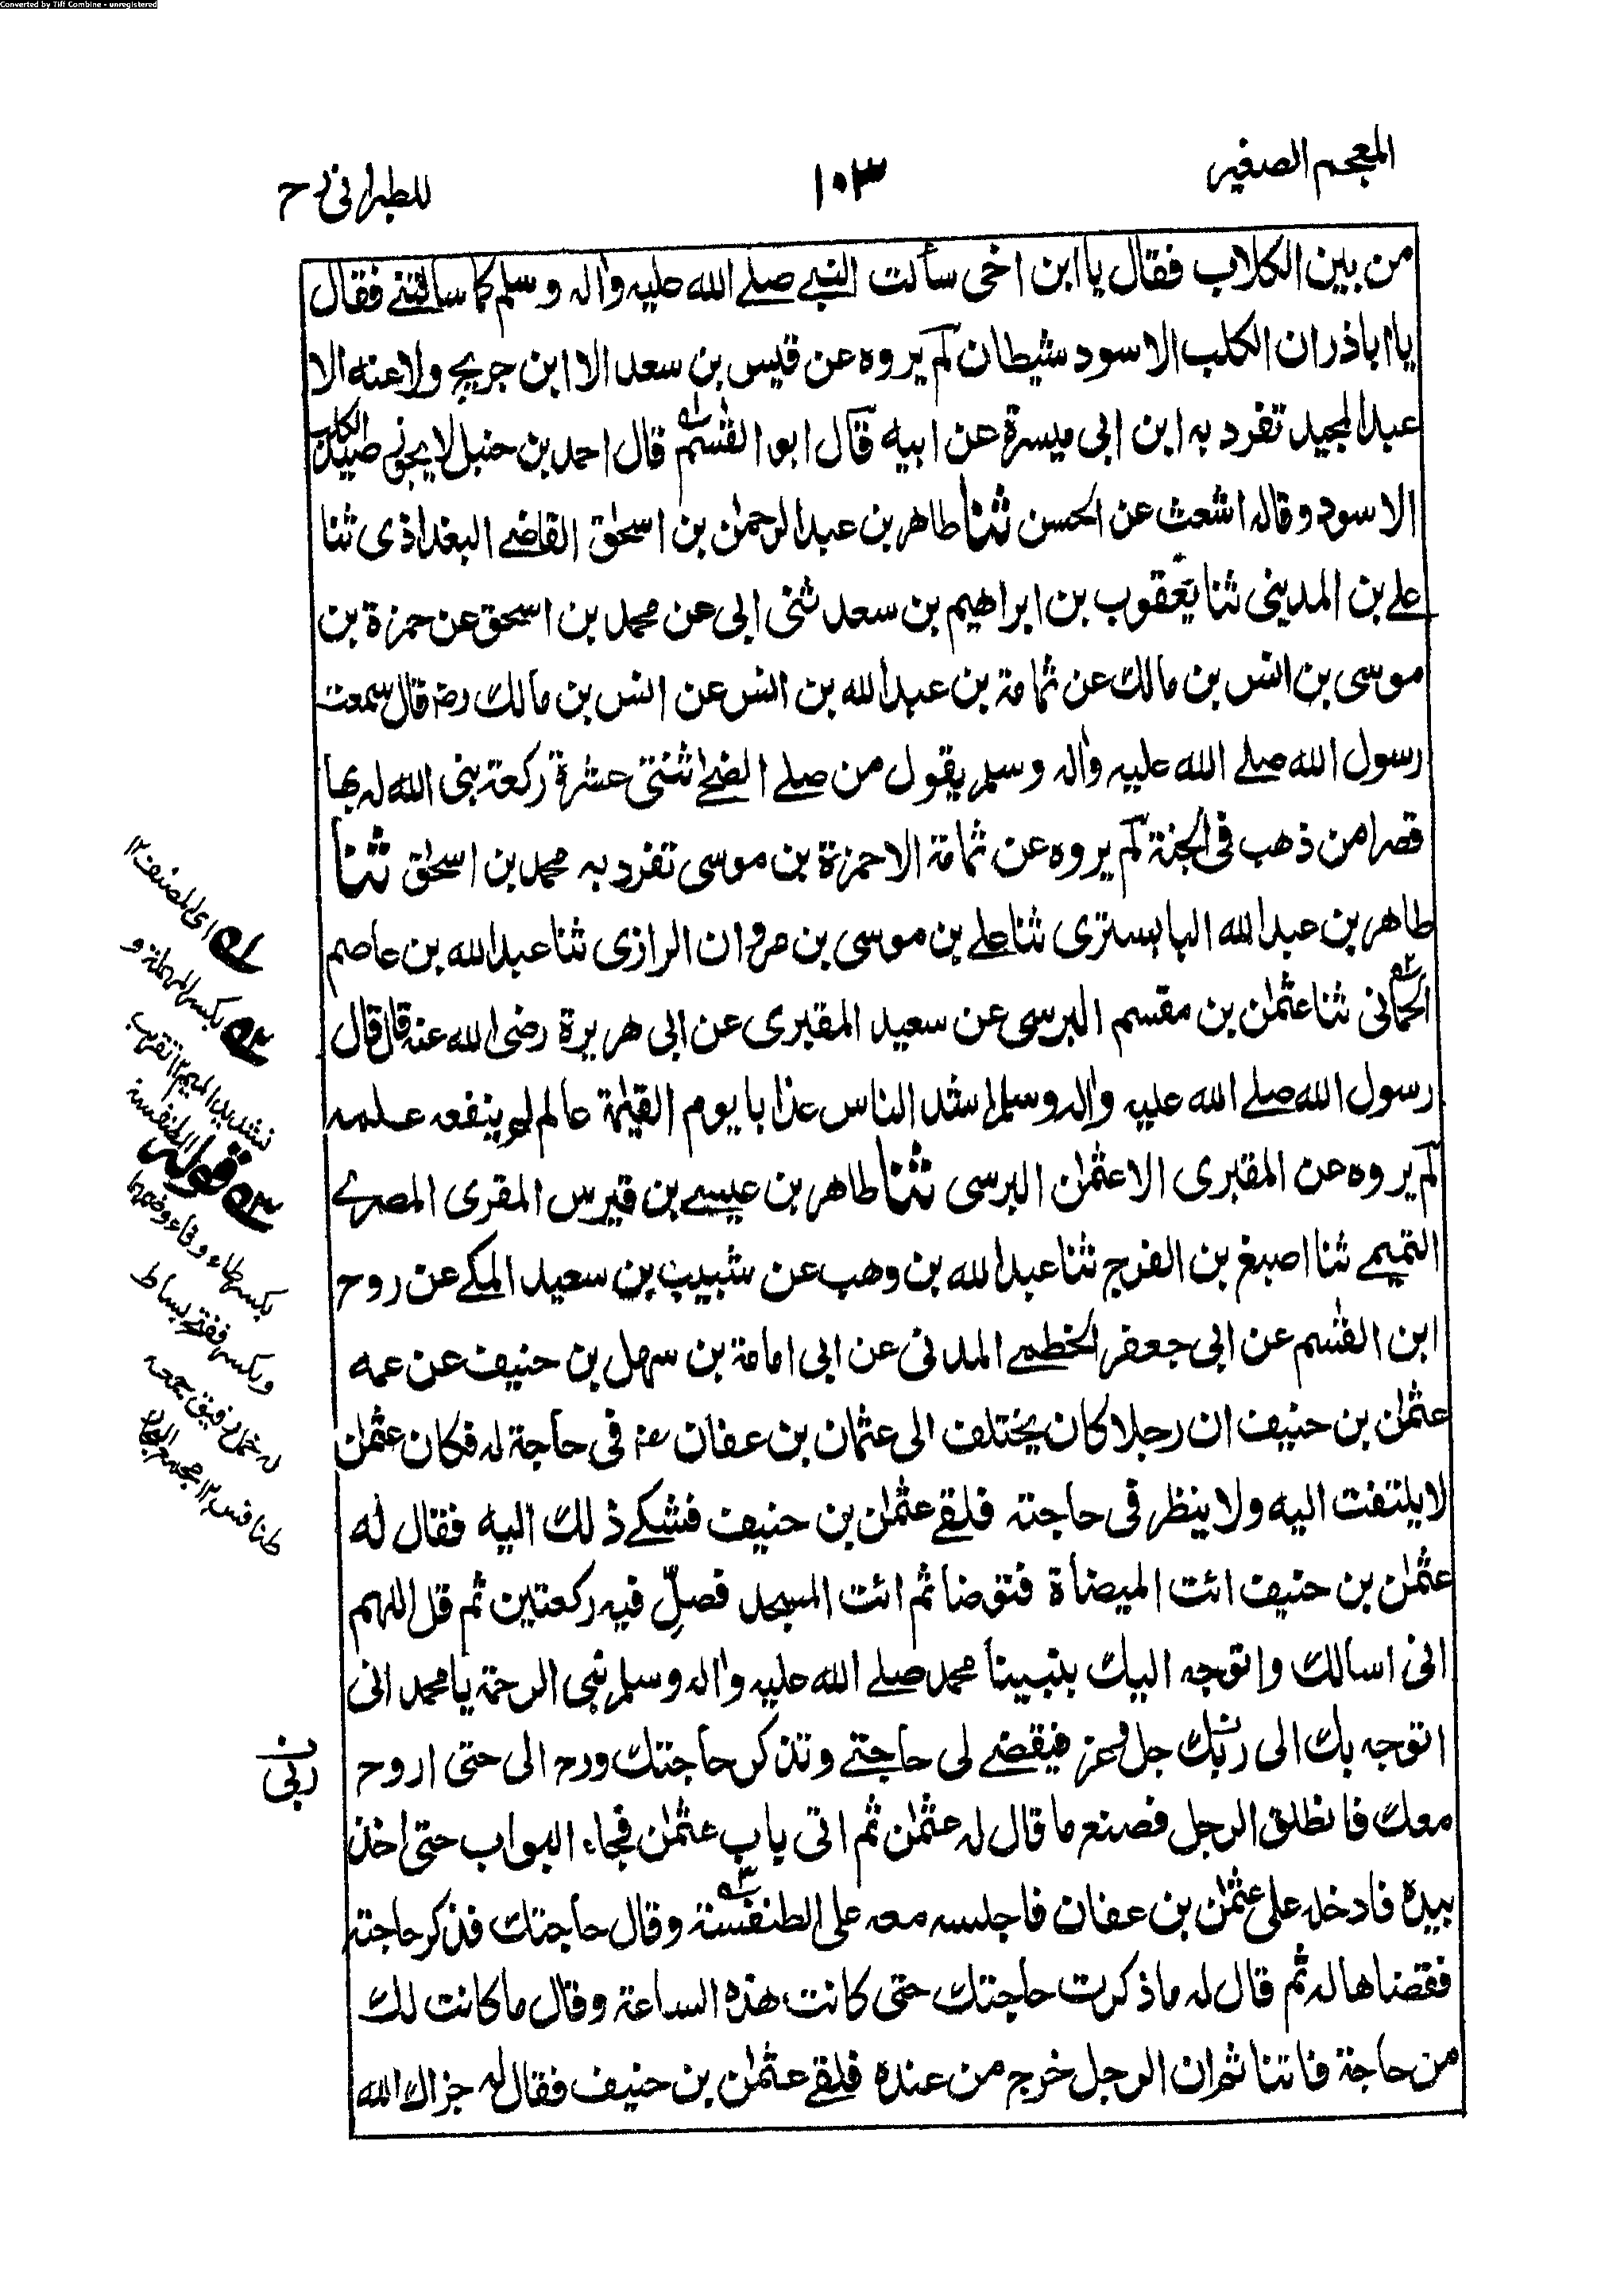 Converted by Tiff Combine - unregistered
المعجم الصغير
١٠٣
للطبرانى رح
من بين الكلاب فقال يا ابن اخى سألت النبے صلے الله عليه واٰله وسلم كما سالتنے فقال
يا اباذر ان الكلب الاسود شيطان لم يروه عن قيس بن سعد الا ابن جريج ولا عنه الا
عبد المجيد تفرد به ابن ابى ميسرة عن ابيه قال ابو القٰسم قال احمد بن حنبل لا يجوز صيد الكلب
الاسود وقاله اشعث عن الحسن ثنا طاهر بن عبد الرحمٰن بن اسحٰق القاضے البغداذى ثنا
علے بن المدينى ثنا يعقوب بن ابراهيم بن سعد ثنى ابى عن محمد بن اسحق عن حمزة بن
موسى بن انس بن مالك عن ثمامة بن عبد الله بن انس عن انس بن مالك رضـ قال سمعت
رسول الله صلے الله عليه واٰله وسلم يقول من صلے الضحے اثنتى عشرة ركعة بنى الله له بها
قصرا من ذهب فى الجنة لم يروه عن ثمامة الا حمزة بن موسى تفرد به محمد بن اسحٰق ثنا
طاهر بن عبد الله البابسترى ثنا علے بن موسى بن مروان الرازى ثنا عبد الله بن عاصم
الحمانى ثنا عثمٰن بن مقسم البرسى عن سعيد المقبرى عن ابى هريرة رضى الله عنه قال قال
رسول الله صلے الله عليه واٰله وسلم اشد الناس عذابا يوم القيٰمة عالم لم ينفعه علمه
لم يروه عن المقبرى الا عثمٰن البرسى ثنا طاهر بن عيسے بن قيرس المقرى المصرے
التميمے ثنا اصبغ بن الفرج ثنا عبد الله بن وهب عن شبيب بن سعيد المكے عن روح
ابن القٰسم عن ابى جعفر الخطمے المدنى عن ابى امامة بن سهل بن حنيف عن عمه
عثمٰن بن حنيف ان رجلا كان يختلف الى عثمان بن عفان رضـ فى حاجة له فكان عثمٰن
لا يلتفت اليه ولا ينظر فى حاجته فلقے عثمٰن بن حنيف فشكے ذلك اليه فقال له
عثمٰن بن حنيف ائت الميضاة فتوضا ثم ائت المسجد فصلِّ فيه ركعتين ثم قل اللهم
انى اسالك واتوجه اليك بنبينا محمد صلے الله عليه واٰله وسلم نبى الرحمة يا محمد انى
اتوجه بك الى ربك جل وعز فيقضے لى حاجتے وتذكر حاجتك ورح الى حتى اروح
ربى
معك فانطلق الرجل فصنع ما قال له عثمٰن ثم اتى باب عثمٰن فجاء البواب حتى اخذ
بيده فادخله على عثمٰن بن عفان فاجلسه معه على الطنفسة وقال حاجتك فذكر حاجته
فقضاها له ثم قال له ما ذكرت حاجتك حتى كانت هذه الساعة وقال ما كانت لك
من حاجة فاتنا ثم ان الرجل خرج من عنده فلقے عثمٰن بن حنيف فقال له جزاك الله
اى المصنف ١٢
بكسر المهملة و
تشديد الميم ١٢ تقريب
قوله الطنفسة
بكسر طاء وفاء وضمها
وبكسر ففتح بساط
له خمل رقيق جمعه
طنافس ١٢ مجمع البحار